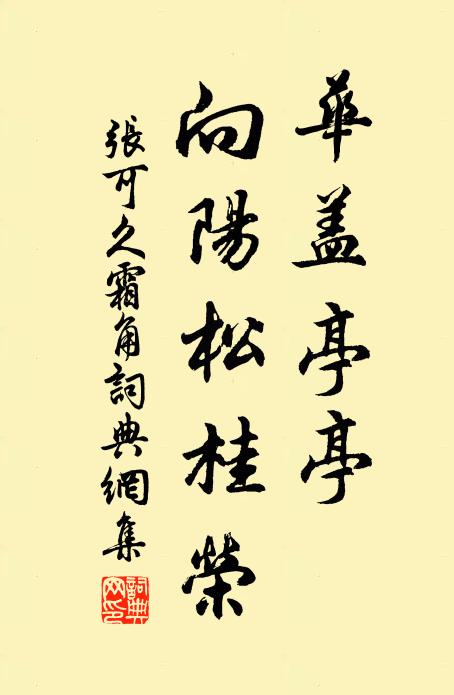 華盖亭亭
向陽松桂榮
張可久霜角詞典網集
詞典
网印